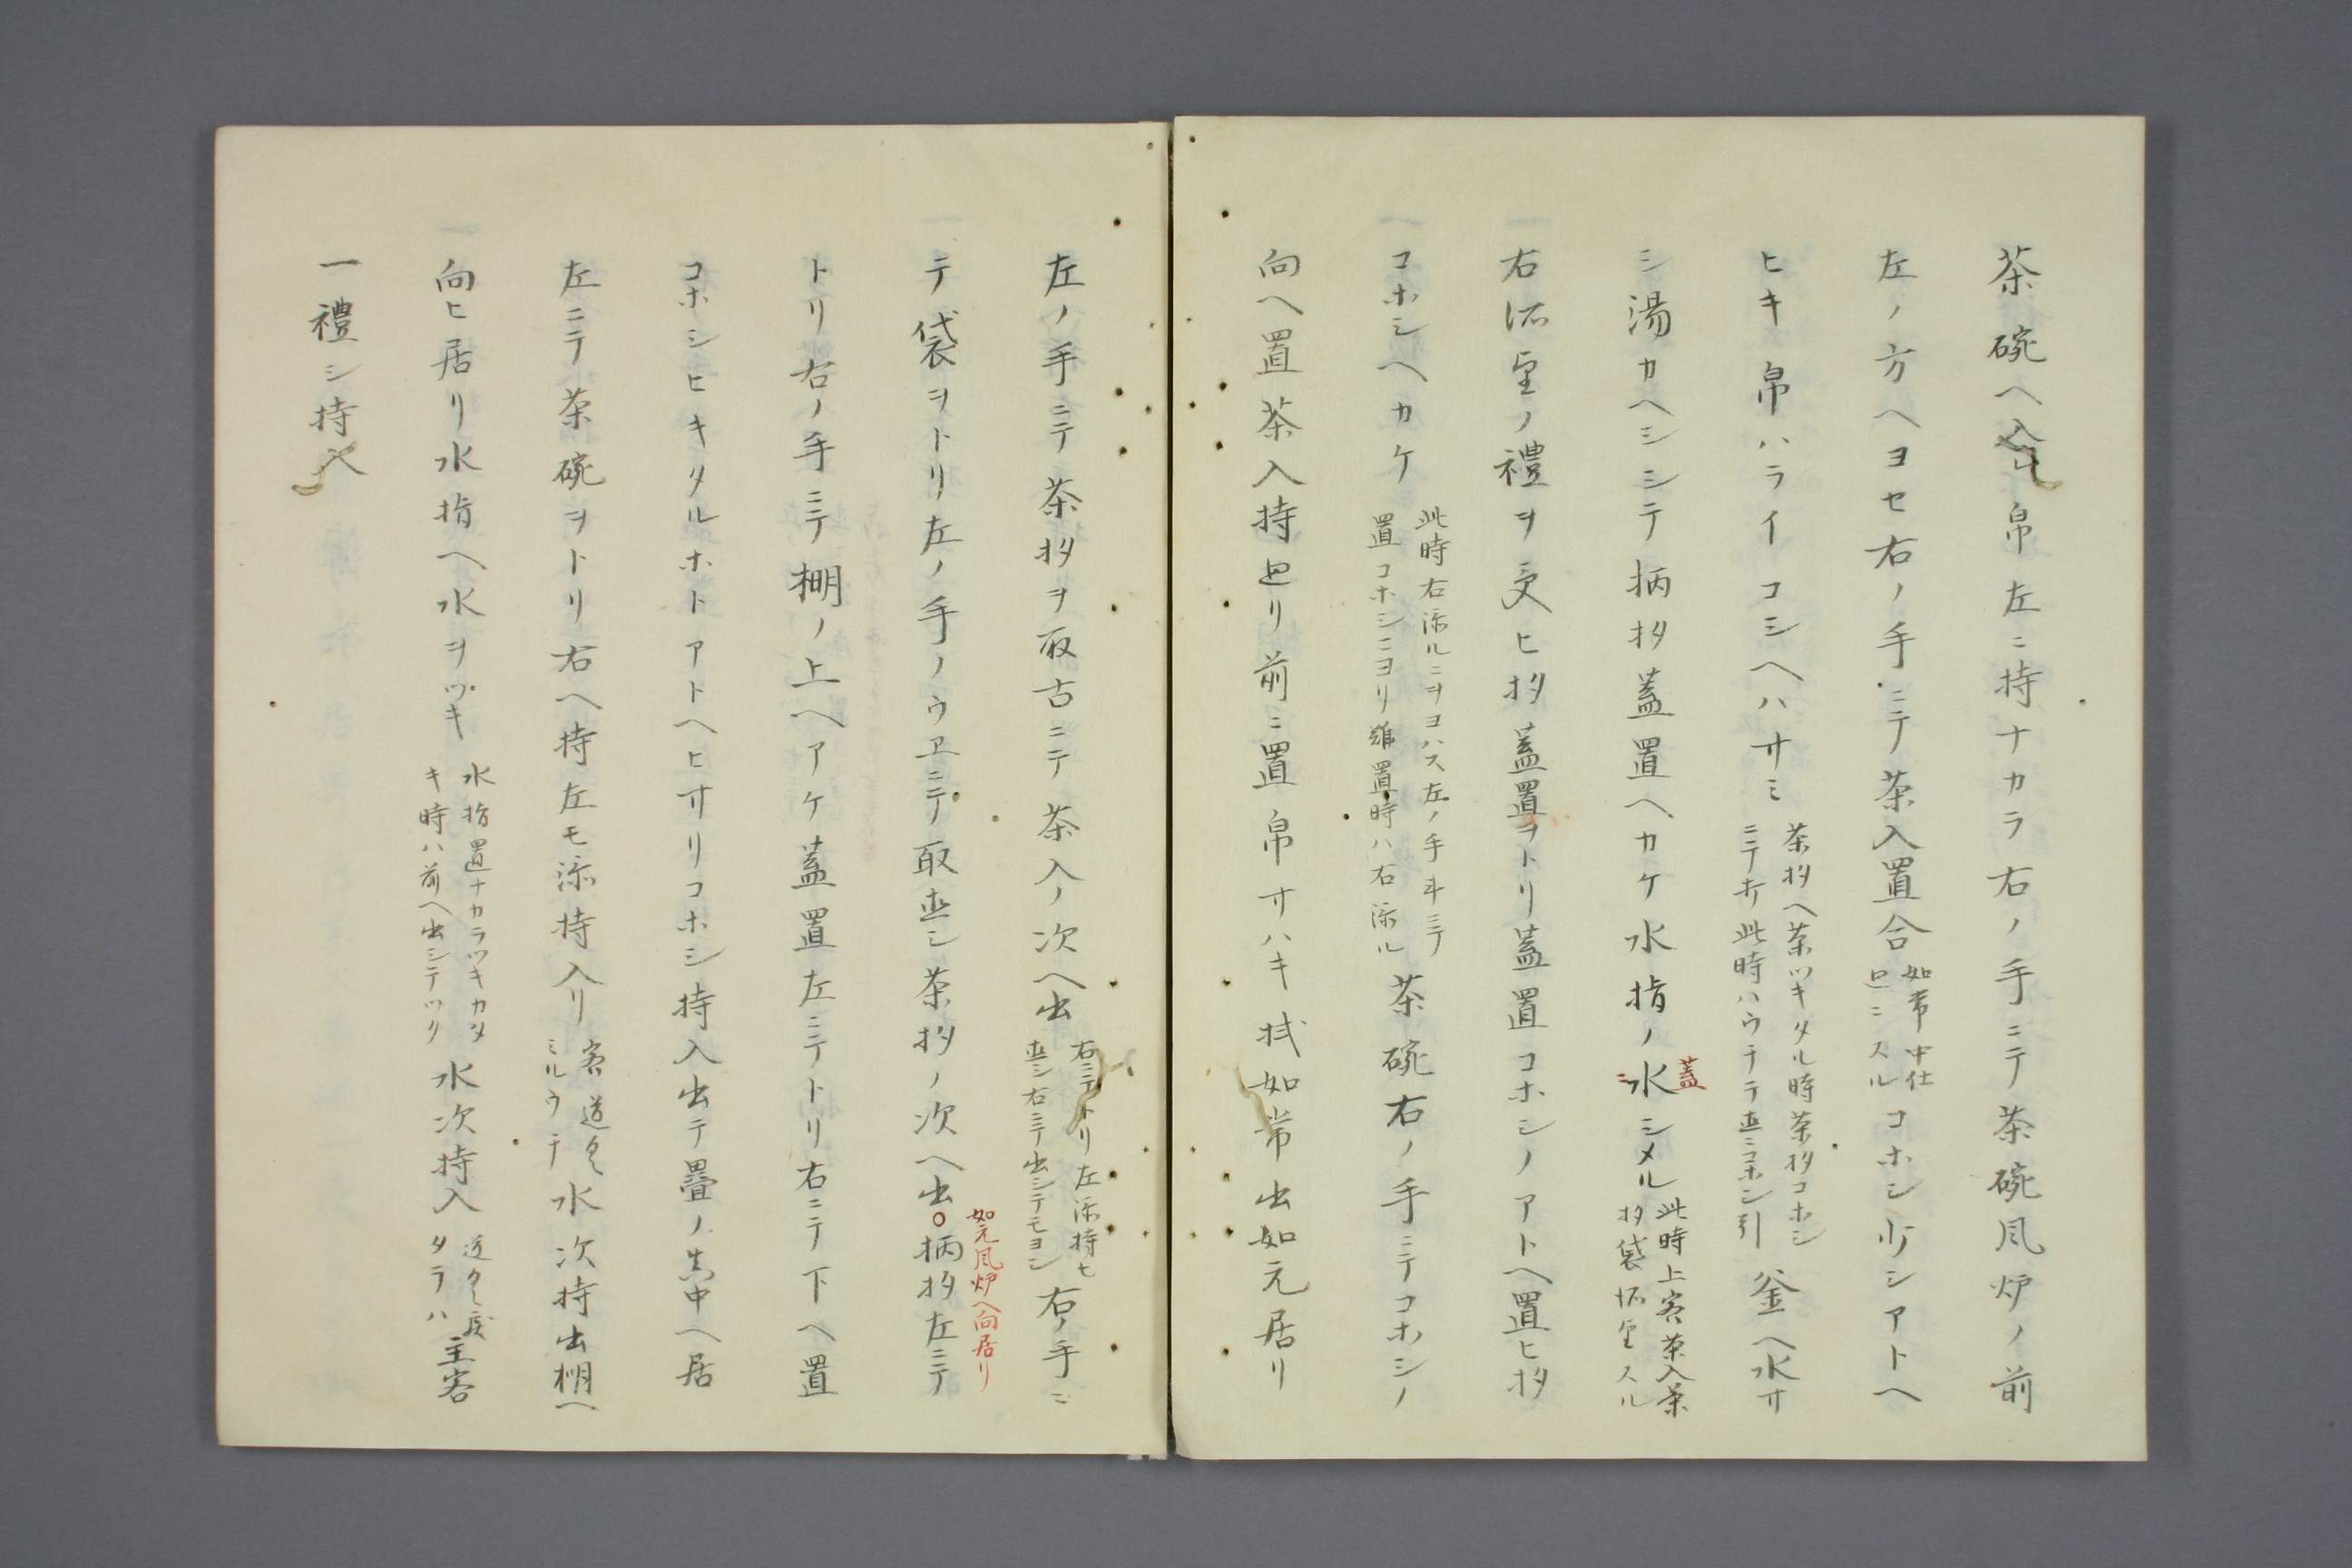 茶碗ヘ入レ帛左ニ持ナカラ右ノ手ニテ茶碗風炉ノ前
左ノ方ヘヨセ右ノ手ニテ茶入置合
如常中仕
ニスル
コホシ少シアトヘ
ヒキ帛ハライコシヘハサミ
茶杓ヘ茶ツキタル時茶杓コホシ
ニテ此時ハウチテ直ニコホシ引
釜ヘ水サ
シ湯カヘシシテ柄杓蓋置ヘカケ水指ノ水シメル
蓋
此時上客茶入茶
杓袋所望スル
右所望ノ禮ヲ受ヒ杓蓋置ヲトリ蓋置コホシノアトヘ置ヒ杓
コホシヘカケ
此時右添ルニヲヨハス左ノ手斗ニテ
置コホシニヨリ難置時ハ右添ル
茶碗右ノ手ニテコホシノ
向ヘ置茶入持回リ前ニ置帛サハキ拭如常出如元居リ
左ノ手ニテ茶杓ヲ取右ニテ茶入ノ次ヘ出
右ニテトリ左添持ヒ
直シ右ニテ出シテモヨシ
右ノ手ニ
テ袋ヲトリ左ノ手ノウヱニテ取直シ茶杓ノ次ヘ出○柄杓左ニテ
如元風炉ヘ向居リ
トリ右ノ手ニテ棚ノ上ヘアケ蓋置左ニテトリ右ニテ下ヘ置
コホシヒキタルホトアトヘヒサリコホシ持入出テ疊ノ真中ヘ居
左ニテ茶碗ヲトリ右ヘ持左モ添持入リ
客道具
ミルウチ
水次持出棚ヘ
向ヒ居リ水指ヘ水ヲツキ
水指置ナカラツキカタ
キ時ハ前ヘ出シテツク
水次持入
道具戻
タラハ
主客
一禮シ持入